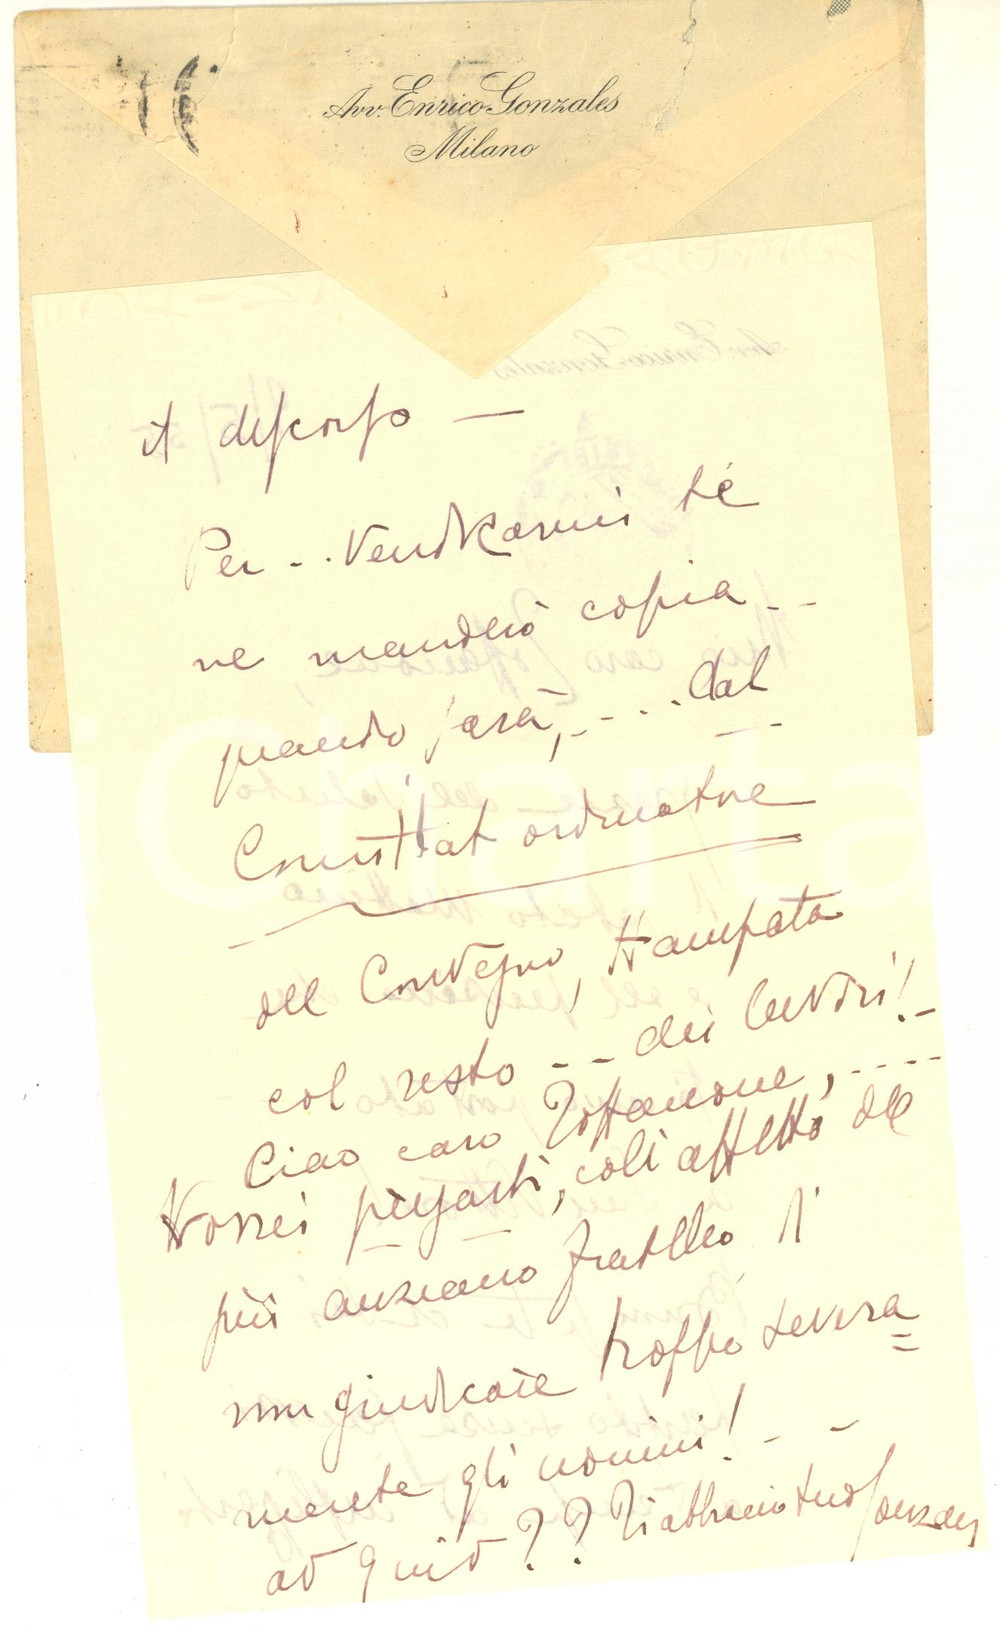 Avv. Enrico Gonzales
Milano
il discorso —
Per... Vendicarmi te
ne manderò copia...
quando sarà,.... dal
Comitat ordinatore
del Convegno, stampata
col resto -- dei lavori! -
Ciao caro Zoffanone,.....
Vorrei pregarti, coll'affetto del
più anziano fratello di
non giudicare troppo severa
mente gli uomini! - -
ad quid?? Ti abbraccio tuo Gonzales